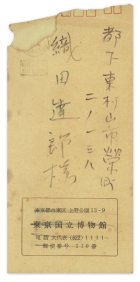 都下東村山市榮町
二ノ一三八
織田達郎様
東京都台東区上野公園13-9
東京国立博物館
電話 大代表 (822) 1111
郵便番号 110番